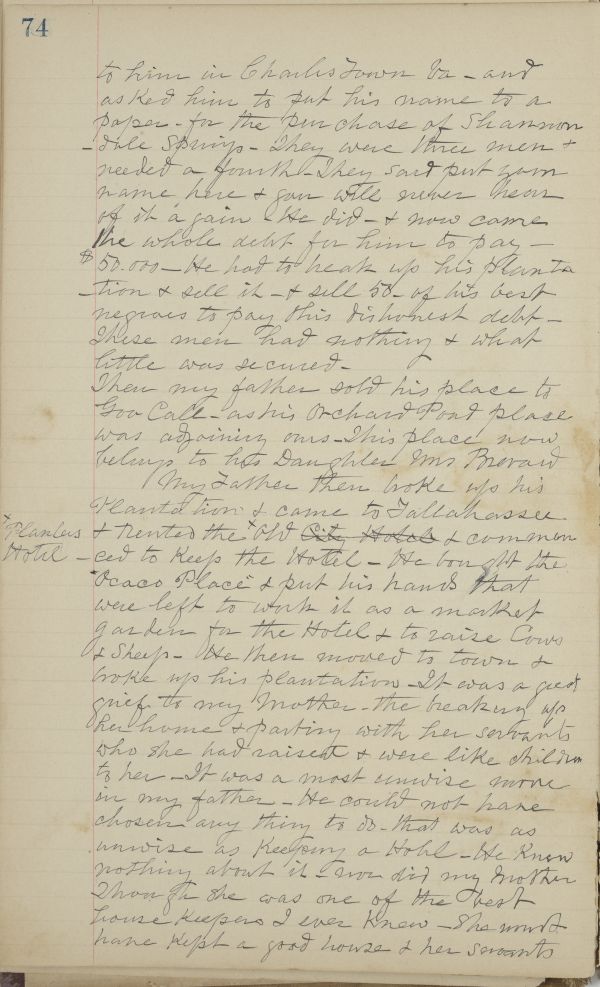 74
to him in Charles Town Va - and
asked him to put his name to a
paper - for the purchase of Shannon
- dale Springs - They were three men &
needed a fourth - They said put your
name here & you will never hear
of it again - He did - & now came
the whole debt for him to pay -
$50.000 - He had to break up his planta
- tion & sell it - & sell 50 - of his best
negroes to pay this dishonest debt -
These men had nothing & what
little was secured -
Then my father sold his place to
Gov Call - as his Orchard Pond place
was adjoining ours - This place now
belongs to his Daughter Mrs Brevard
My Father then broke up his
Plantation & came to Tallahassee
& rented the x Old City Hotel & commen
x Planters
Hotel -
- ced to keep the Hotel - He bought the
"Ocaco Place" & put his hands that
were left to work it as a market
garden for the Hotel & to raise Cows
& Sheep - He then moved to town &
broke up his plantation - It was a great
grief to my Mother - the breaking up
her home & parting with her servants
who she had raised & were like children
to her - It was a most unwise move
in my father - He could not have
chosen any thing to do - that was as
unwise as Keeping a Hotel - He Knew
nothing about it - nor did my Mother
Though she was one of the best
house Keepers I ever Knew - She would
have Kept a good house & her servants